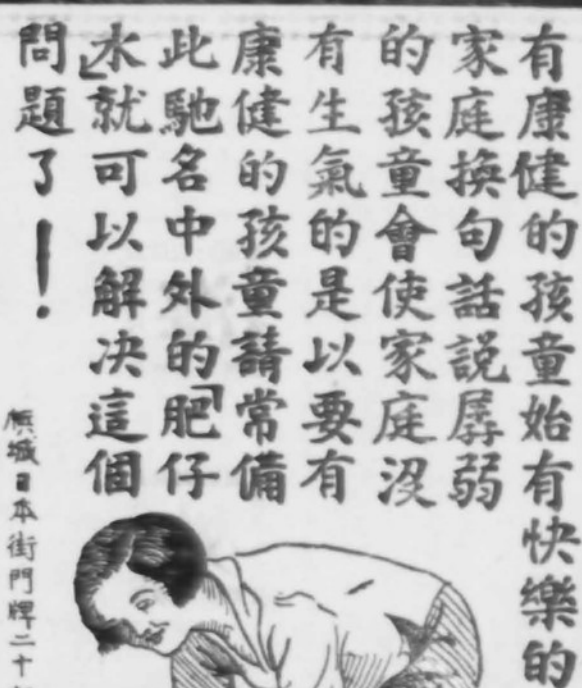 有康健的孩童始有快樂的
家庭換句話說孱弱
的孩童會使家庭沒
有生氣的是以要有
康健的孩童請常備
此馳名中外的「肥仔
水」就可以解决這個
問題了！
檳城日本街門牌二十